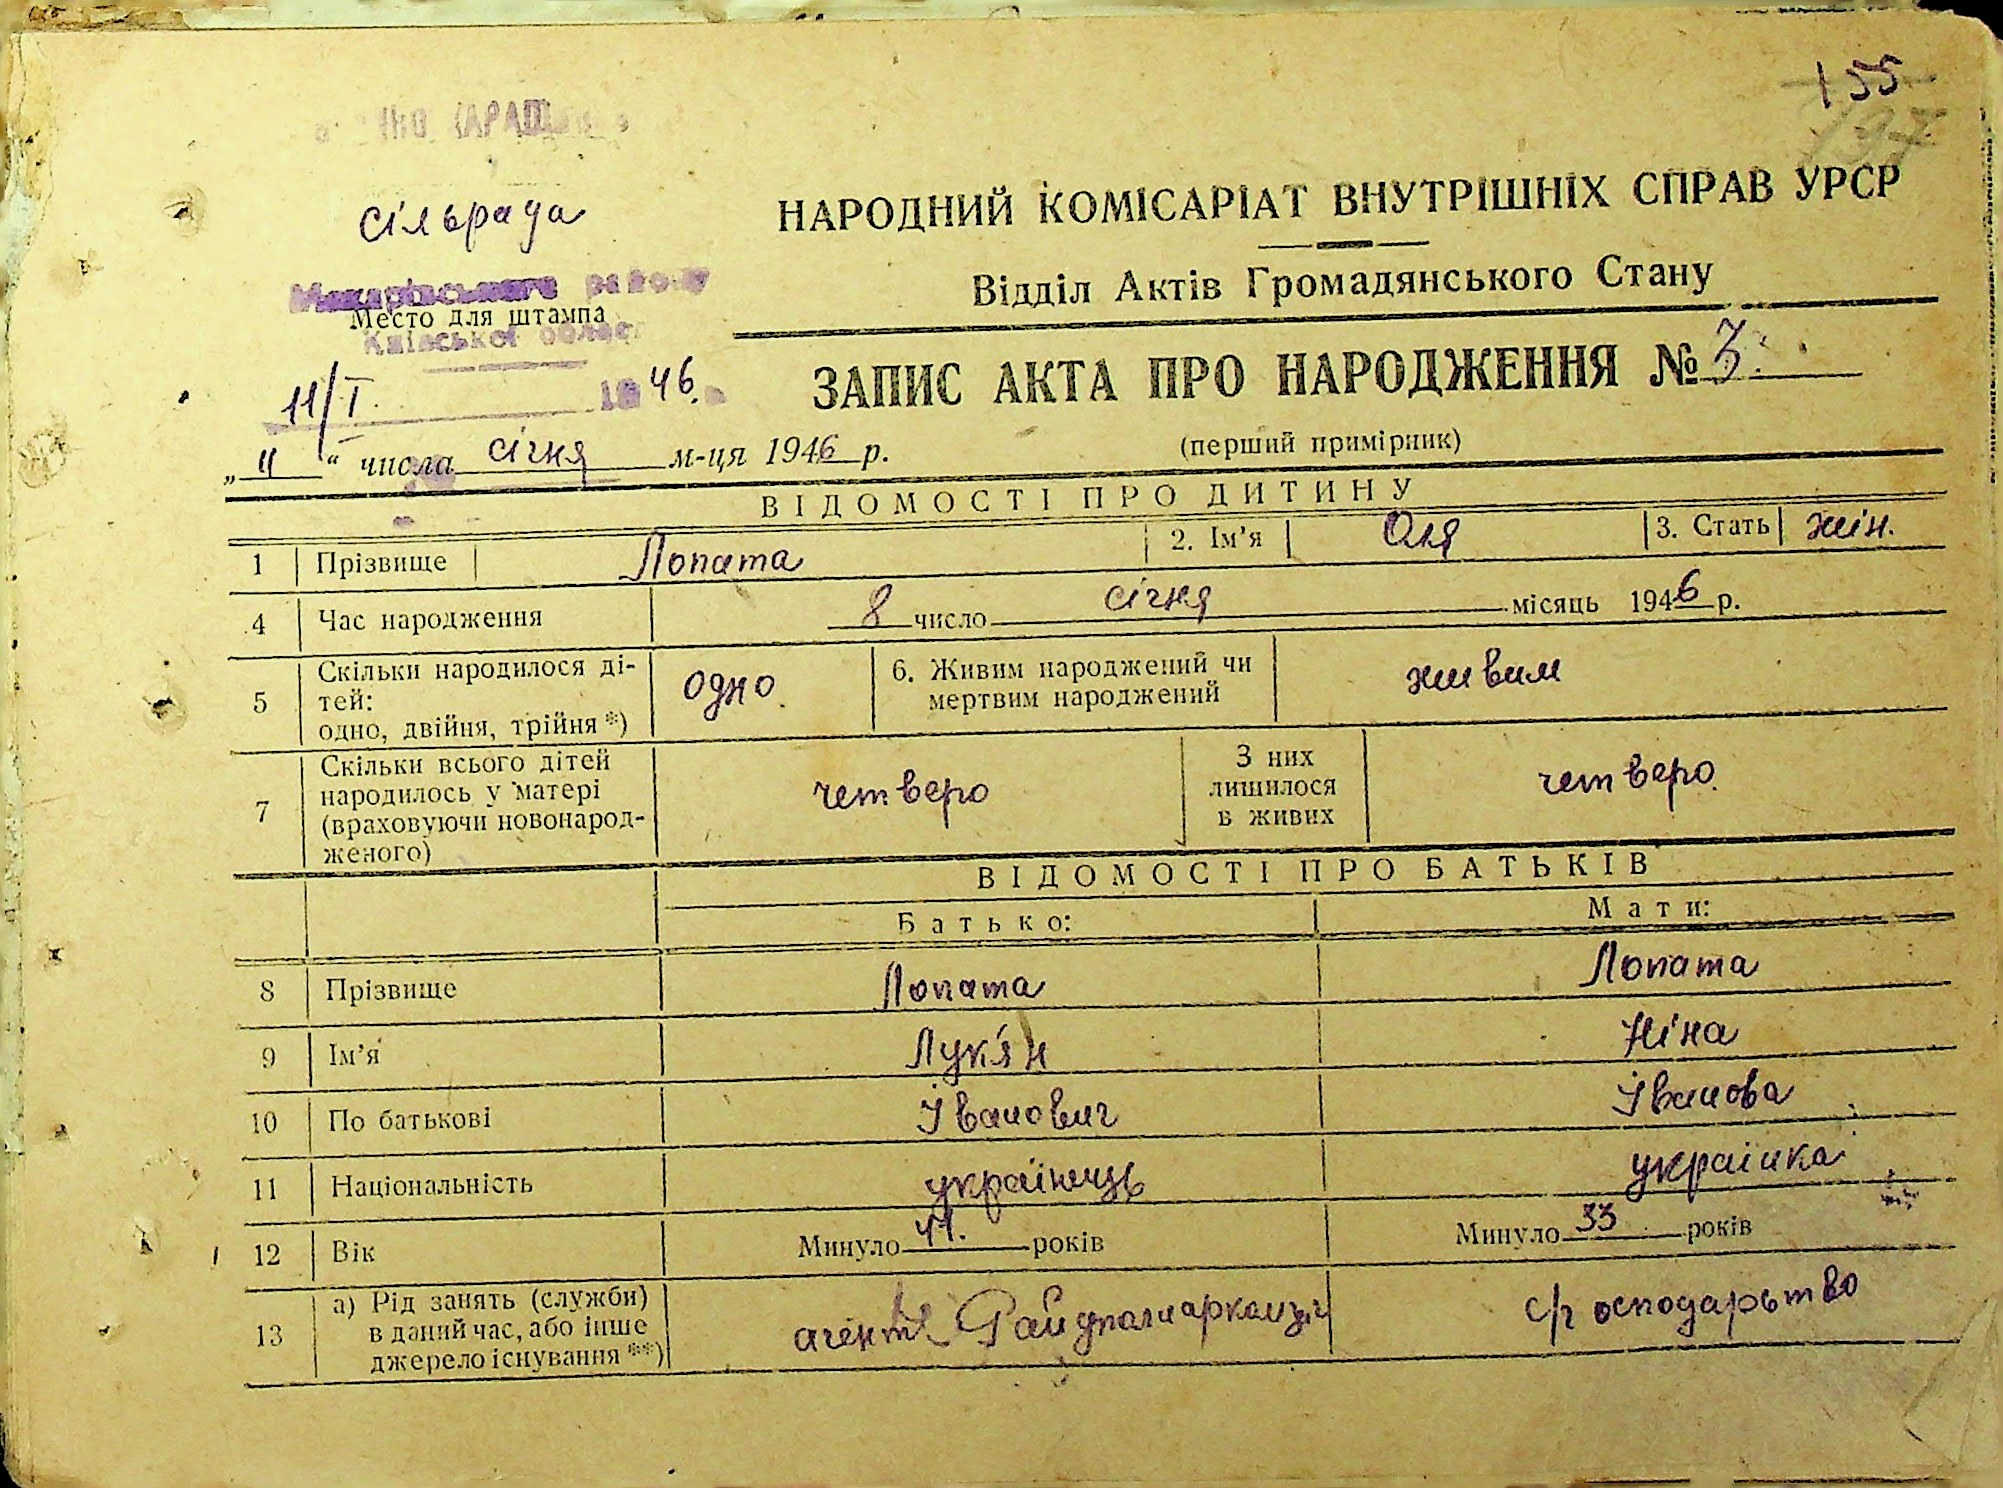 155
197
сільрада
НАРОДНИЙ КОМІСАРІАТ ВНУТРІШНІХ СПРАВ УРСР
Відділ Актів Громадянського Стану
Макарівського району
Место для штампа
Київської област
11/I. 1946.
ЗАПИС АКТА ПРО НАРОДЖЕННЯ № 3.
„11“ числа січня м-ця 1946 р. (перший примірник)
ВІДОМОСТІ ПРО ДИТИНУ
1 Прізвище Лопата 2. Ім’я Оля 3. Стать жін.
4 Час народження 8 число січня місяць 1946 р.
5 Скільки народилося ді-
тей:
одно, двійня, трійня *) одно. 6. Живим народжений чи
мертвим народжений живим
7 Скільки всього дітей
народилось у матері
(враховуючи новонарод-
женого) четверо З них
лишилося
в живих четверо.
ВІДОМОСТІ ПРО БАТЬКІВ
Батько: Мати:
8 Прізвище Лопата Лопата
9 Ім’я Лук'ян Ніна
10 По батькові Іванович Іванова
11 Національність українець українка
12 Вік Минуло 41. років Минуло 33 років
13 а) Рід занять (служби)
в даний час, або інше
джерело існування **) агент с/господарьтво